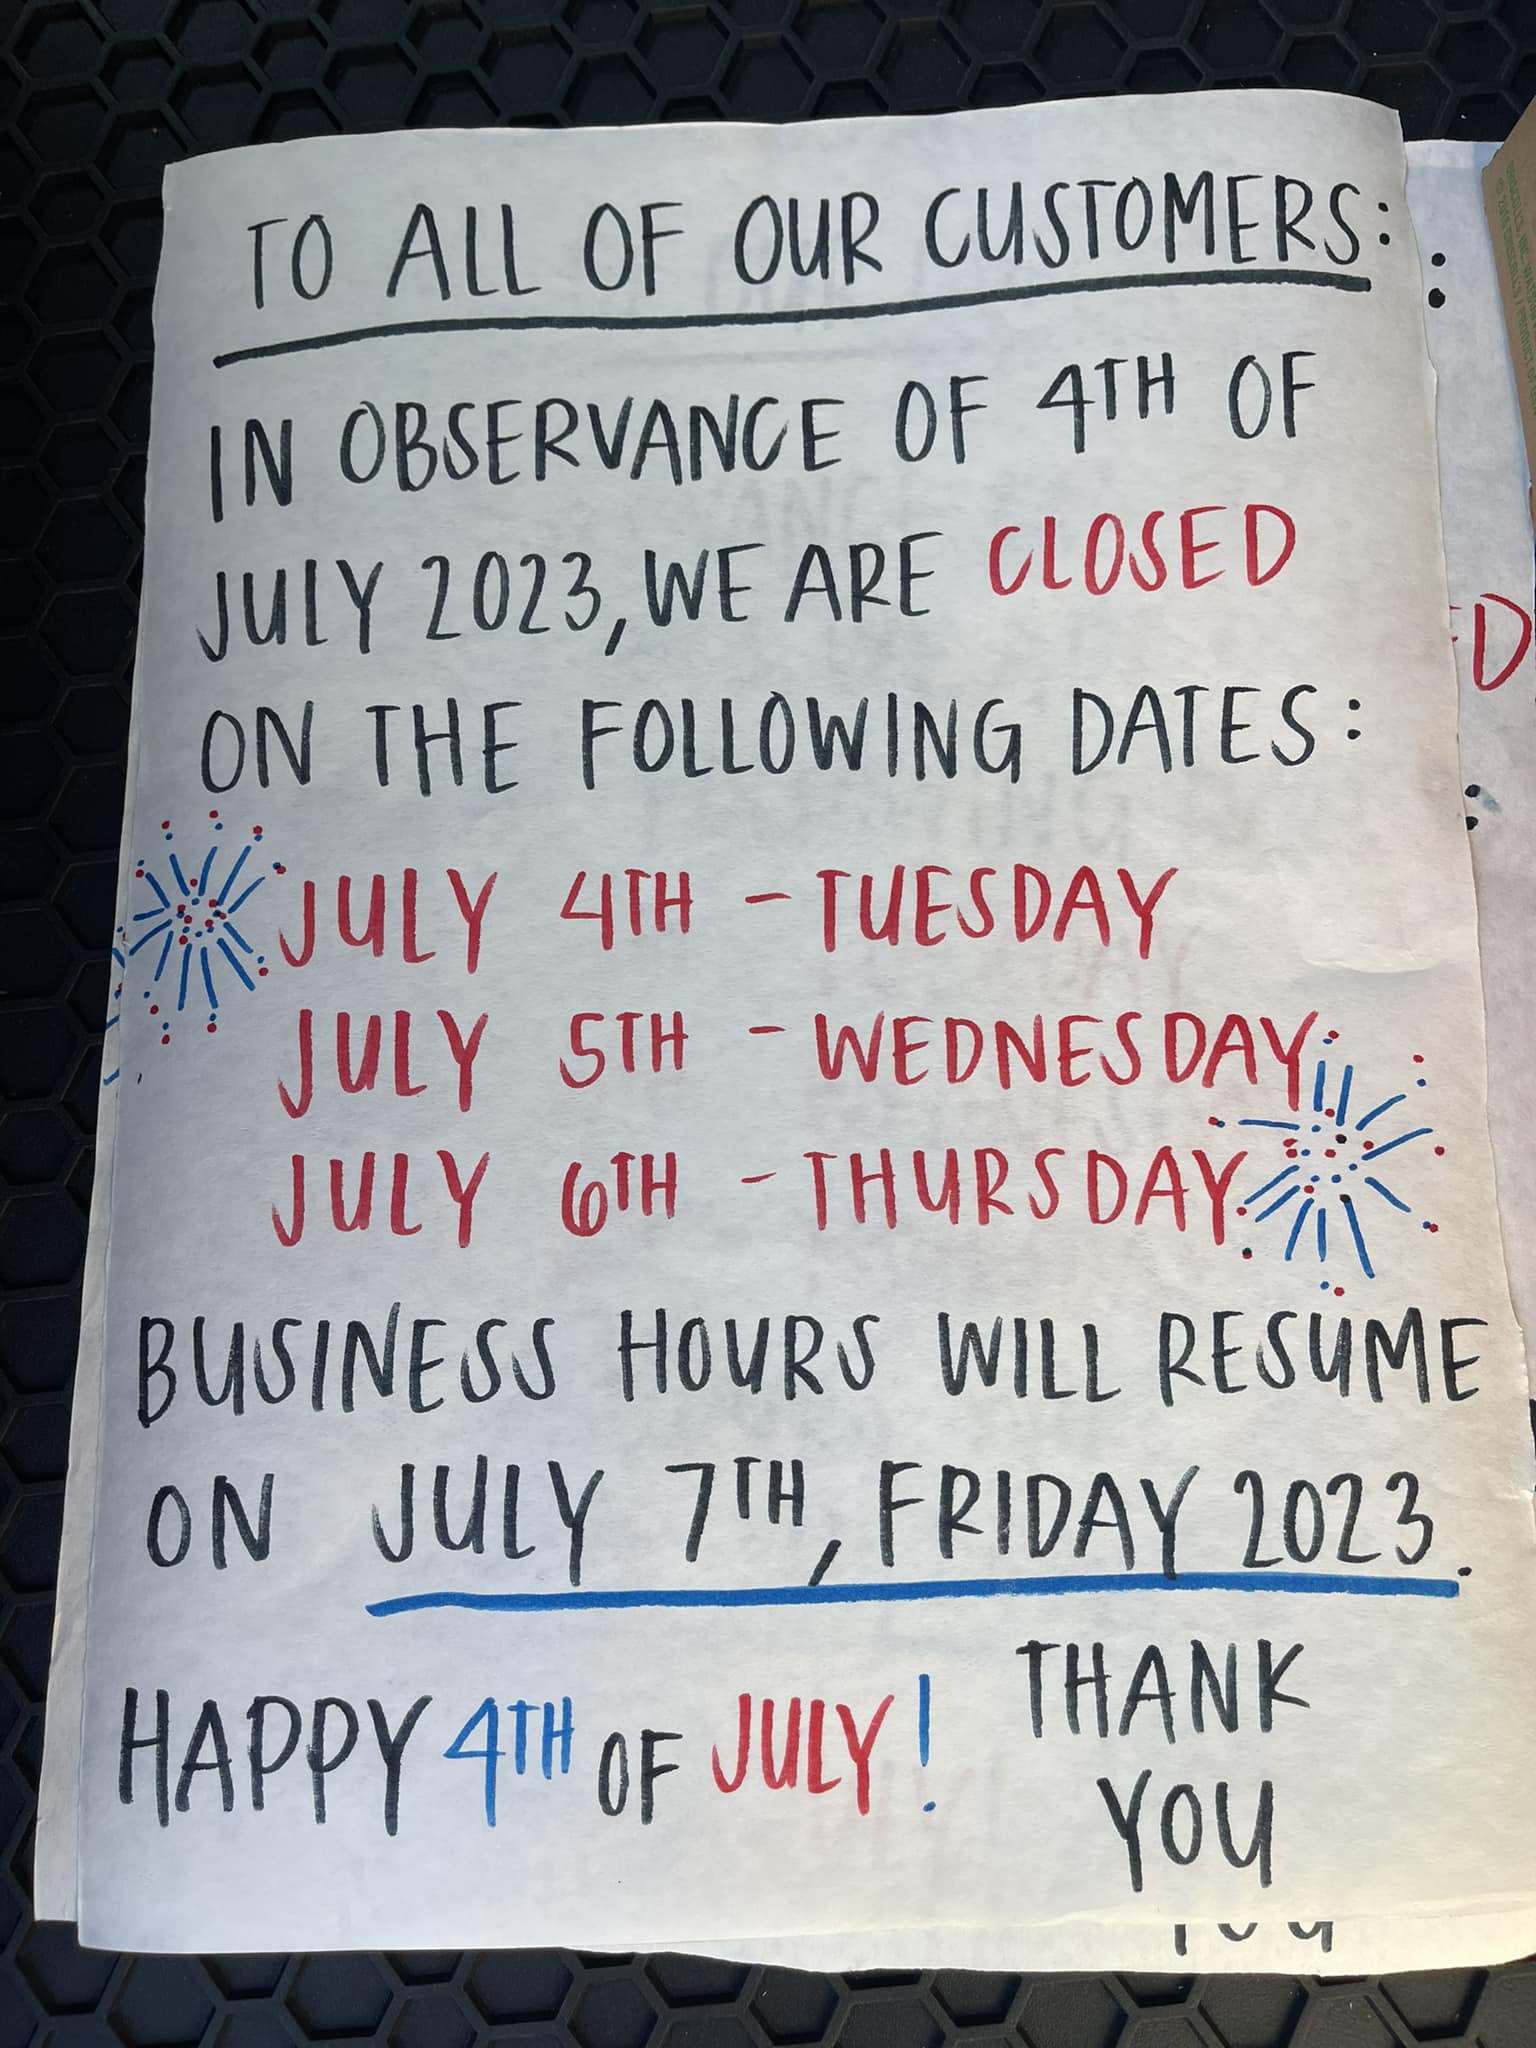 TO ALL OF OUR CUSTOMERS:
IN OBSERVANCE OF 4TH OF
JULY 2023, WE ARE CLOSED
ON THE FOLLOWING DATES:
JULY 4TH - TUESDAY
JULY 5TH - WEDNESDAY
JULY 6TH - THURSDAY
BUSINESS HOURS WILL RESUME
ON JULY 7TH, FRIDAY 2023.
HAPPY 4TH OF JULY!
THANK
YOU